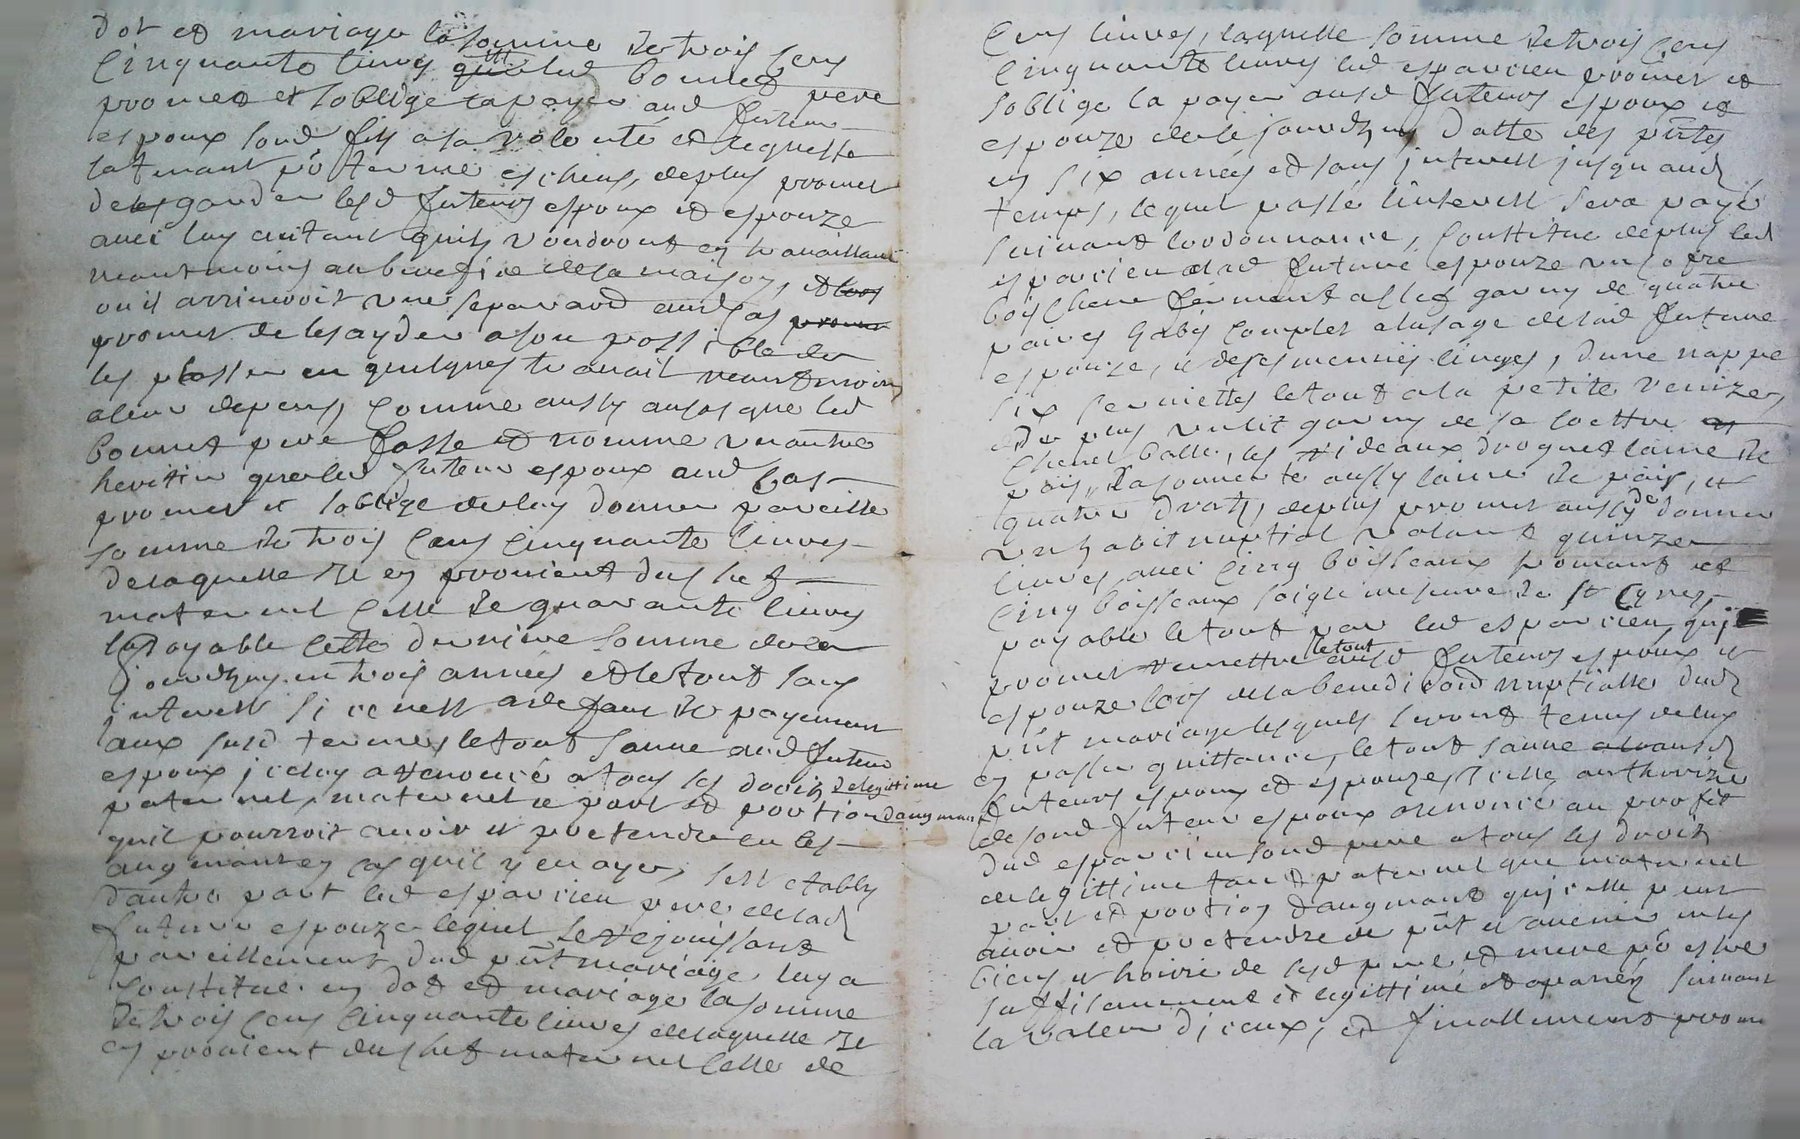 dot et mariage la somme de trois cens
cinquante livres led bonnet pere
promet et soblige la payer aud futeur
espoux sond fils a sa volonté et requeste
la tenant po terme eschus, deplus promet
de les garder lesd futeurs espoux et espouze
avec luy autant quils voudront en travaillant
neantmoins au benefice de sa maison, et
ou il arriveroit une separaon aud cas
promet de les ayder a son possible de
les placer en quelques travail neantmoins
a leur depens, comme aussy au cas que led
bonnet pere fasse et nomme un autre
heritier que led futeur espoux aud cas
promet et soblige de luy donner pareille
somme de trois cens cinquante livres
de laquelle il en provient du chef
maternel celle de quarante livres
payable cette derniere somme de ce
jourdhuy en trois années et le tout sans
interest si ce nest a defaut de payement
aux susd termes le tout sauve aud futeur
espoux iceluy a renoncé a tous les droits de legittime
paternel, maternel et part et portion daugmant
quil pourroit avoir et pretendre en les
augmant en cas quil y en aye, sest etably
dautre part led esparcieu pere de lad
future espouze lequel se rejouissant
pareillement dud pñt mariage luy a
constitue en dot et mariage la somme
de trois cens cinquante livres de laquelle il
en provient du chef maternel celle de
cens livres, laquelle somme de trois cens
cinquante livres led esparcieu promet et
soblige la payer ausd futeurs espoux et
espouze de ce jourdhuy datte des pñtes
en six années et sans interest jusqu aud
temps, lequel passé linterest sera payé
suivant lordonnance, constitue deplus led
esparcieu a lad future espouze un cofre
bois chene fermant a clef garny de quatre
paires habis complet a lusage de lad future
espouze, et de ses menues linges, dune nappe
six serviettes le tout a la petite venize,
et de plus un lit garny de sa coettre
chevet balle, les rideaux droguet laine de
païs, aussy laine de païs, et
quatre draps, deplus promet aussy de donner
un habit nuptial valant quinze
livres, avec cinq boisseaux fromant et
cinq boisseaux soigle mesure de St Cyres,
payable le tout par led esparcieu qui
promet remettre le tout ausd futeurs espoux et
espouze lors de la benediction nuptialle dud
pñt mariage lesquels seront tenus de luy
en passer quittance, le tout sauve
futeurs espoux et espouze, icelle authorizée
de sond futeur espoux a renoncé au profit
dud esparcieu sond pere a tous les droits
de legittime tant paternel que maternel
part et portion daugmant quicelle peut
avoir et pretendre de pñt et avenir en les
biens et hoirie de sesd pere et mere po estre
suffisamment et legittimé et apanée suivant
la valeur diceux, et finallement prome